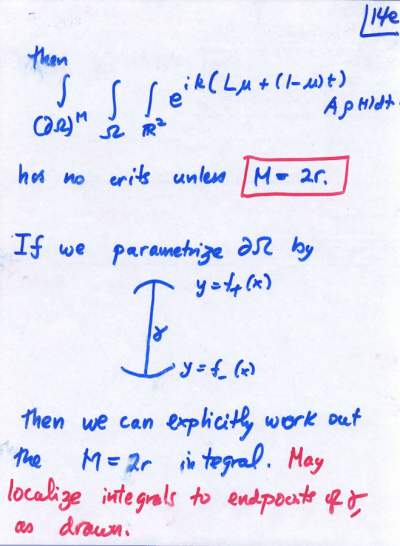 14e
then
∫(∂Ω)^M ∫Ω ∫ℝ² e^{ik(Lμ + (1-μ)t)} A ρ(t)dt.
has no crits unless M = 2r.
If we parametrize ∂Ω by
y = f₊(x)
γ
y = f₋(x)
then we can explicitly work out
the M = 2r integral. May
localize integrals to endpoints of γ,
as drawn.